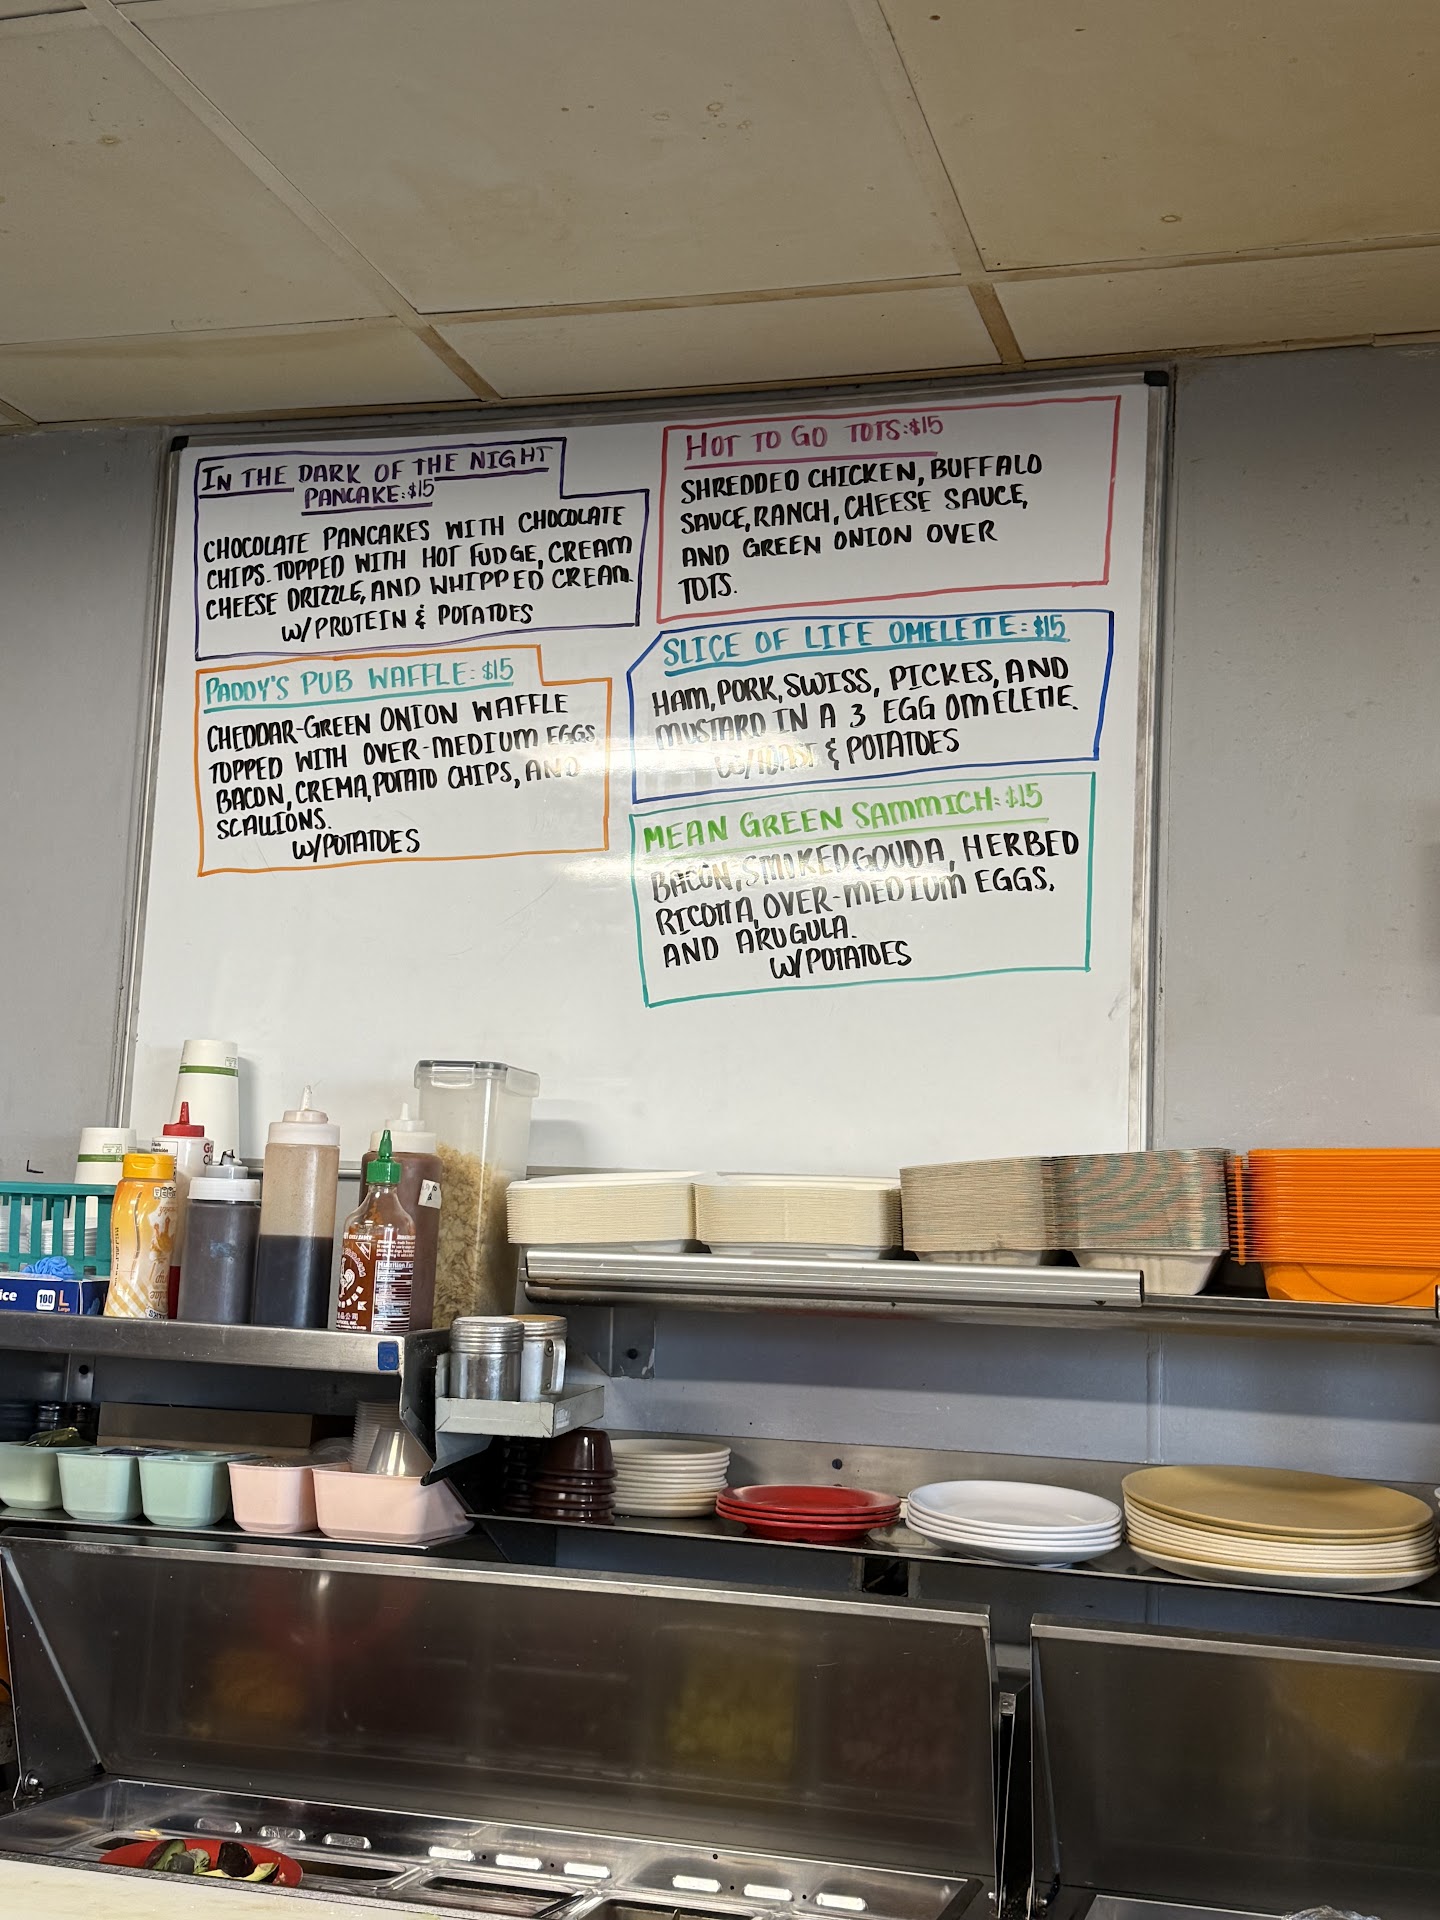 IN THE DARK OF THE NIGHT
PANCAKE: $15
CHOCOLATE PANCAKES WITH CHOCOLATE
CHIPS. TOPPED WITH HOT FUDGE, CREAM
CHEESE DRIZZLE, AND WHIPPED CREAM.
W/PROTEIN & POTATOES
PADDY'S PUB WAFFLE: $15
CHEDDAR-GREEN ONION WAFFLE
TOPPED WITH OVER-MEDIUM EGGS,
BACON, CREMA, POTATO CHIPS, AND
SCALLIONS.
W/POTATOES
HOT TO GO TOTS: $15
SHREDDED CHICKEN, BUFFALO
SAUCE, RANCH, CHEESE SAUCE,
AND GREEN ONION OVER
TOTS.
SLICE OF LIFE OMELETTE: $15
HAM, PORK, SWISS, PICKES, AND
MUSTARD IN A 3 EGG OMELETTE.
W/TOAST & POTATOES
MEAN GREEN SAMMICH: $15
BACON, SMOKED GOUDA, HERBED
RICOTTA, OVER-MEDIUM EGGS,
AND ARUGULA.
W/POTATOES
100
L
Large